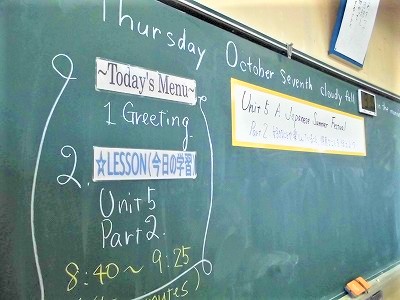 Thursday October seventh cloudy fall in the
~Today's Menu~
1 Greeting
2. ☆LESSON(今日の学習)
Unit 5
Part 2.
8:40～9:25
Unit 5 A Japanese Summer Festival
Part 2